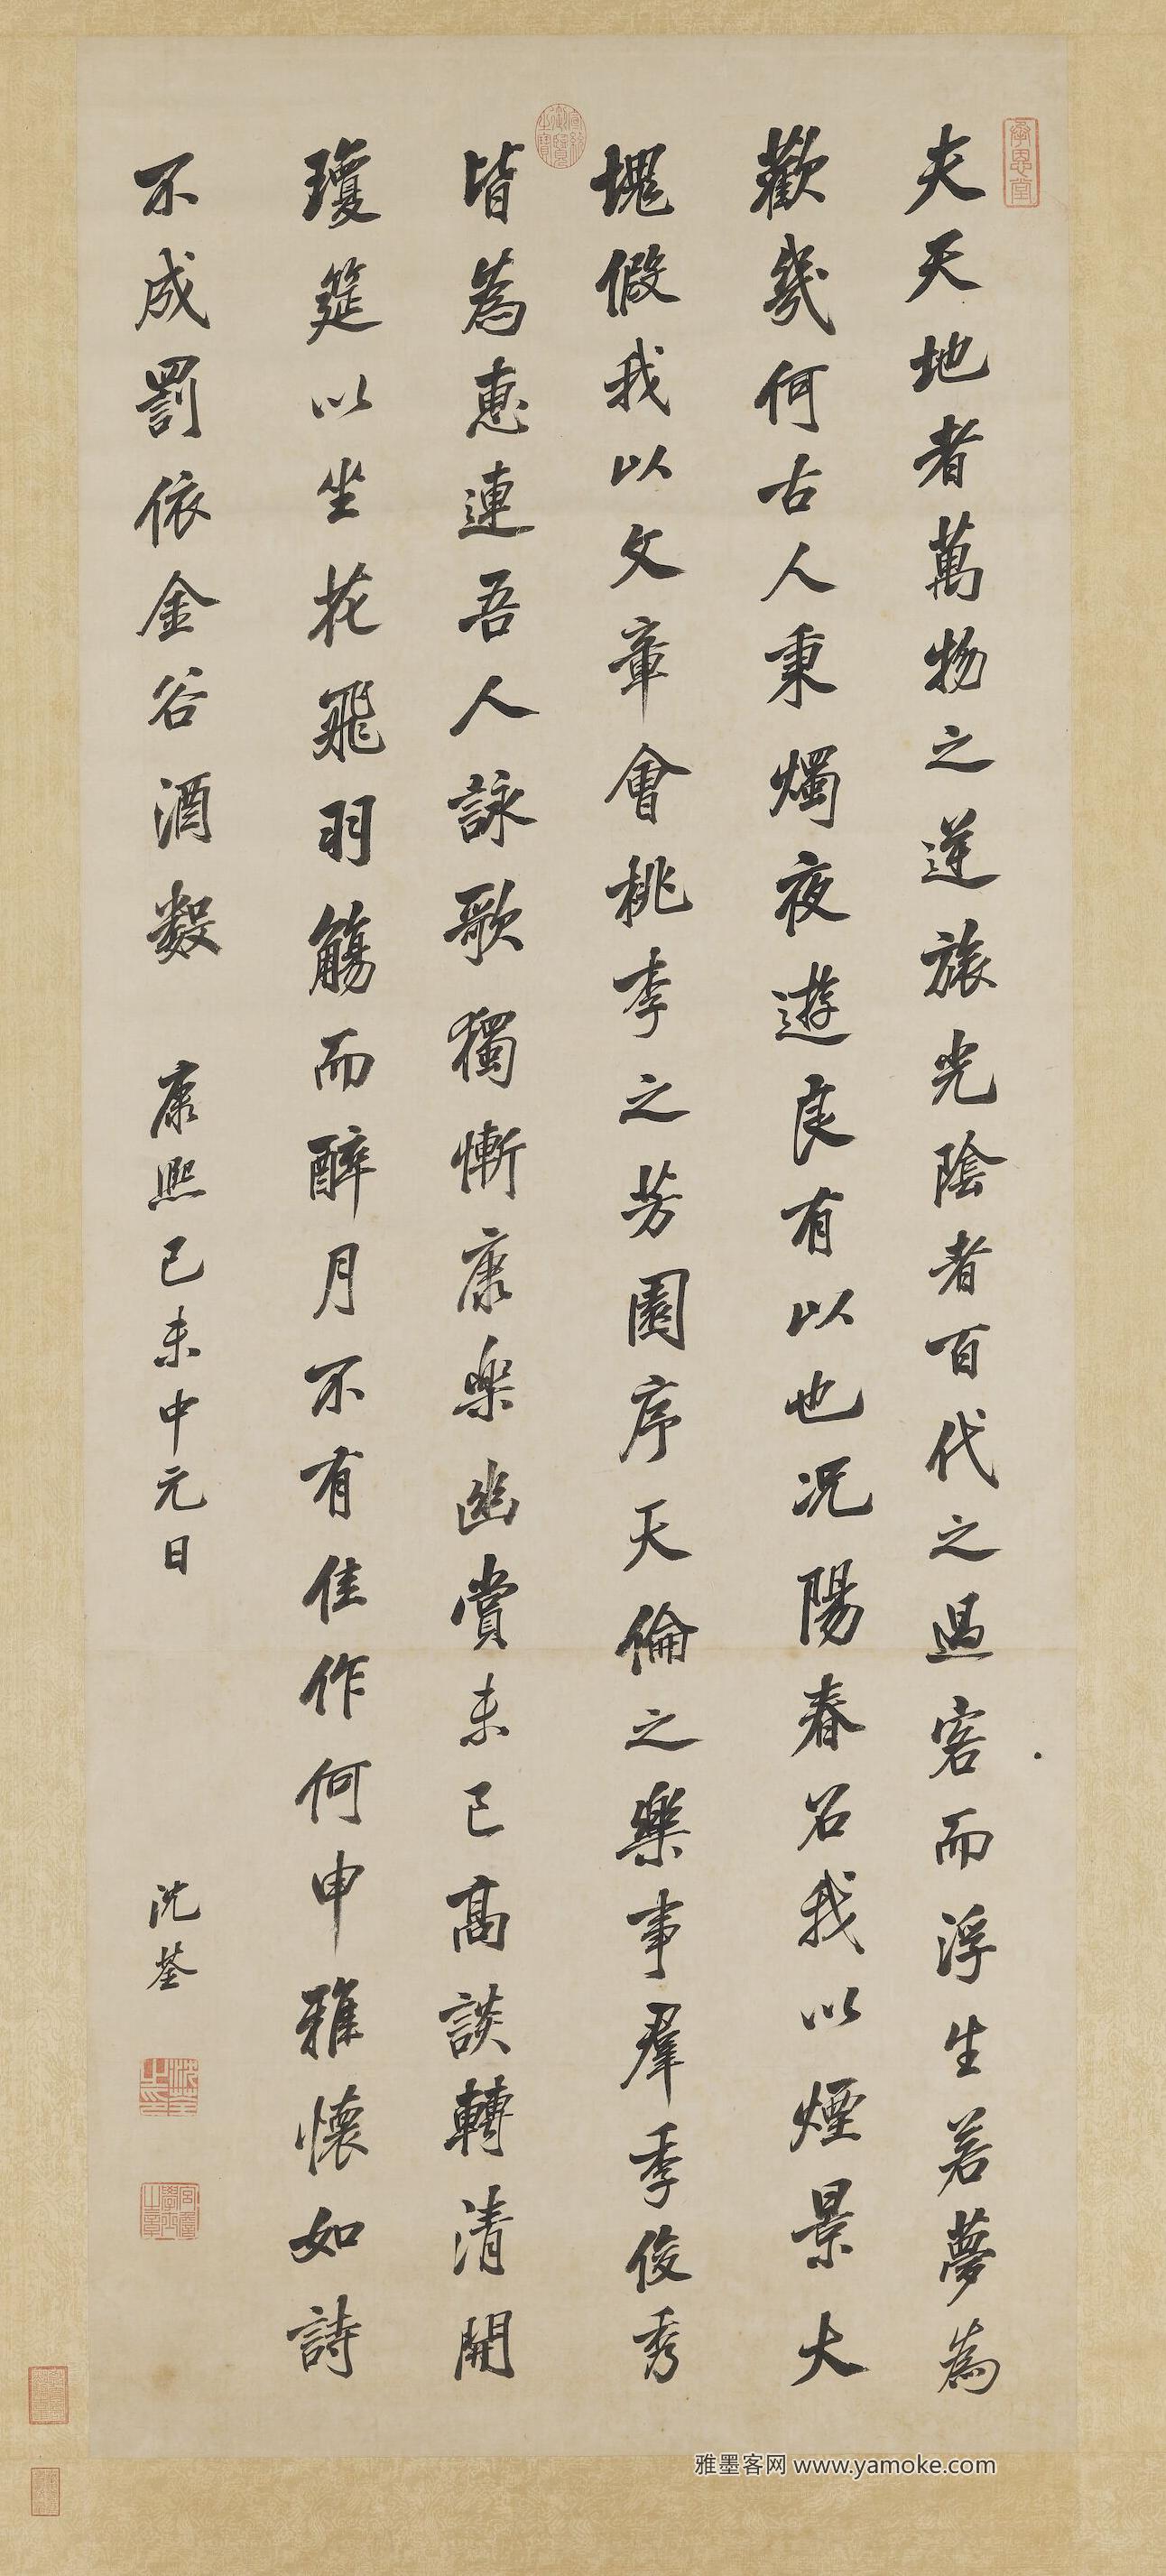 承恩堂
夫天地者萬物之逆旅光陰者百代之過客而浮生若夢為
歡幾何古人秉燭夜遊良有以也況陽春召我以煙景大
塊假我以文章會桃李之芳園序天倫之樂事羣季俊秀
皆為惠連吾人詠歌獨慚康樂幽賞未已高談轉清開
瓊筵以坐花飛羽觴而醉月不有佳作何申雅懷如詩
不成罰依金谷酒數 康熙己未中元日
沈荃
沈荃之印
宮詹學士之章
雅墨客网 www.yamoke.com